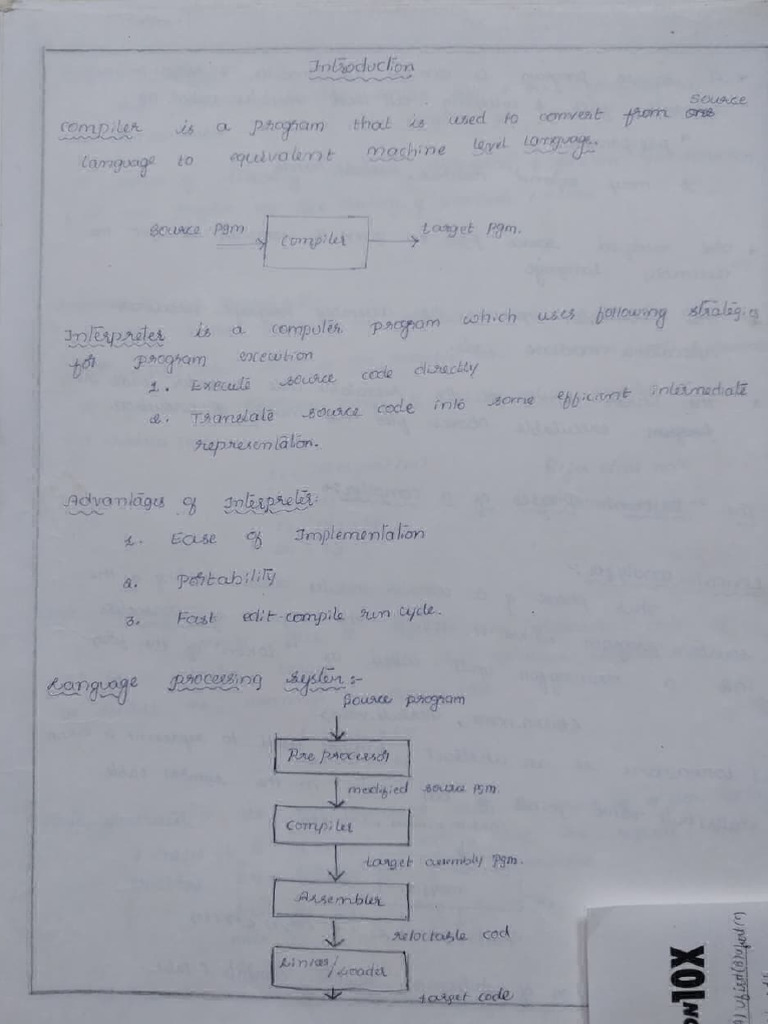 Introduction
source
compiler is a program that is used to convert from
language to equivalent machine level language.
source pgm
compiler
target pgm.
Interpreter is a computer program which uses following strategies
for program execution
1. Execute source code directly
2. Translate source code into some efficient intermediate
representation.
Advantages of Interpreter:
1. Ease of Implementation
2. Portability
3. Fast edit-compile run cycle.
Language processing system:-
Source program
Pre processor
modified source pgm.
compiler
target assembly pgm.
Assembler
reloctable cod
Linker/Loader
target code
10X